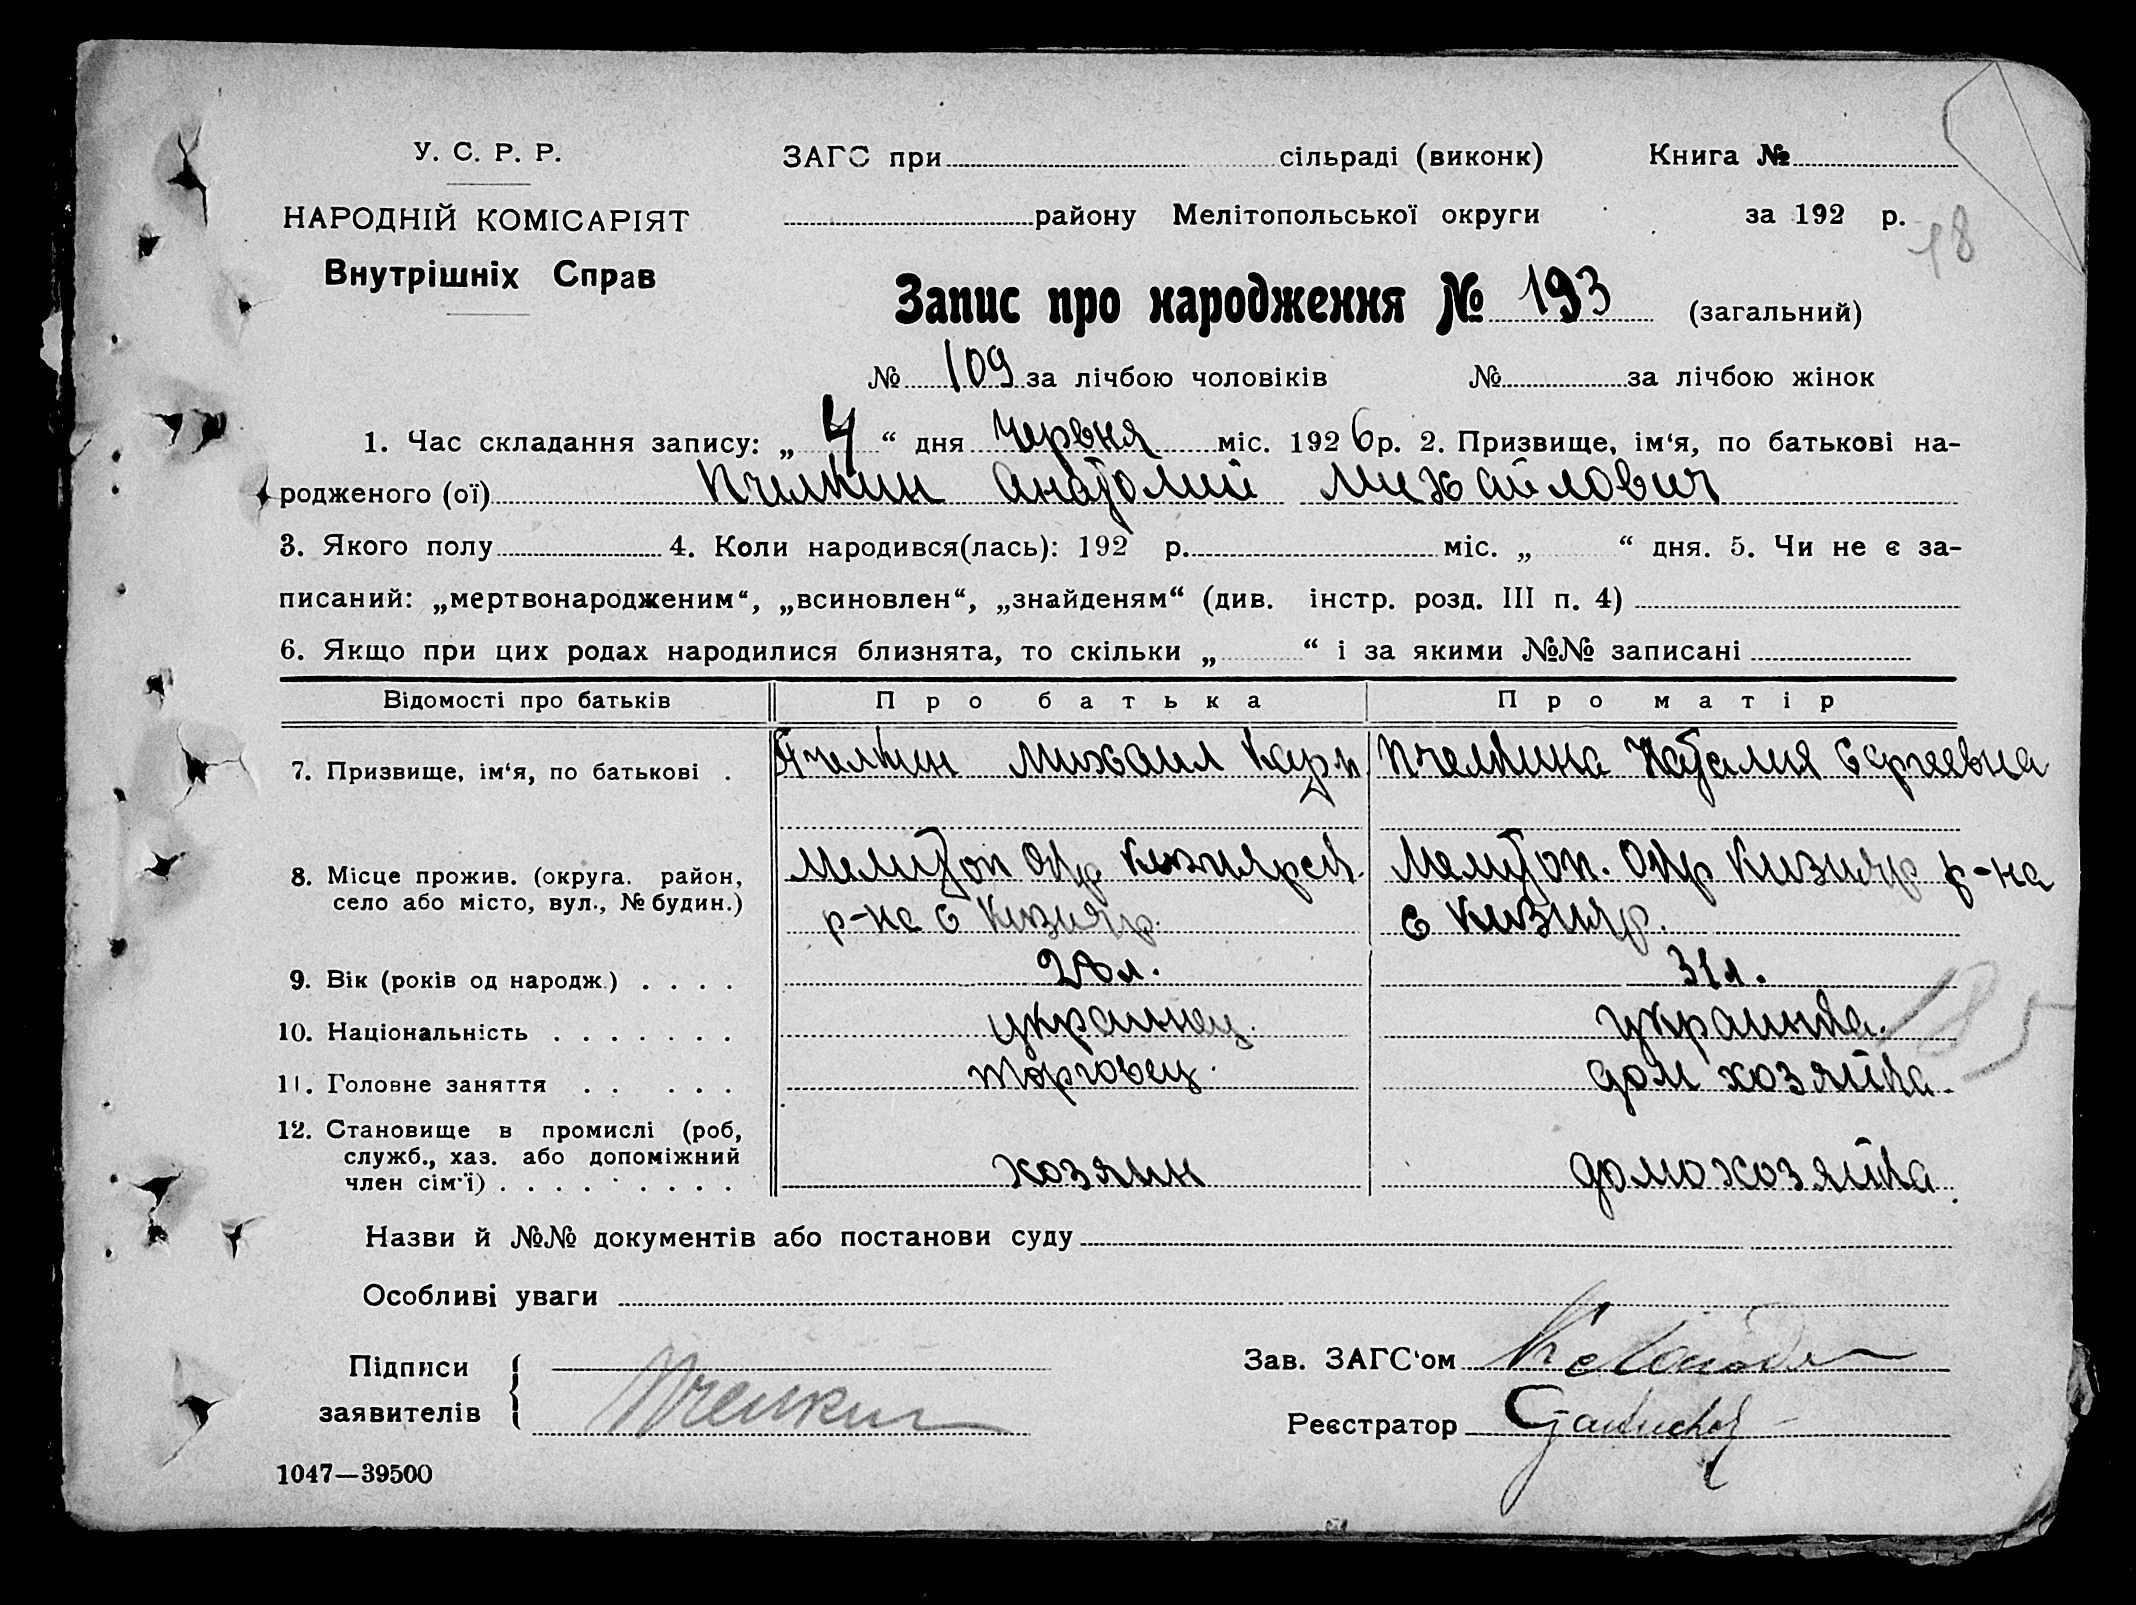 У. С. Р. Р.
НАРОДНІЙ КОМІСАРІЯТ
Внутрішніх Справ
ЗАГС при сільраді (виконк) Книга №
району Мелітопольської округи за 192 р.
18
Запис про народження № 193 (загальний)
№ 109 за лічбою чоловіків № за лічбою жінок
1. Час складання запису: „ 4 “ дня Червня міс. 1926 р. 2. Призвище, ім‘я, по батькові на-
родженого (ої) Пчелкин Анатолий Михайлович
3. Якого полу 4. Коли народився(лась): 192 р. міс. „ “ дня. 5. Чи не є за-
писаний: „мертвонародженим“, „всиновлен“, „знайденям“ (див. інстр. розд. III п. 4)
6. Якщо при цих родах народилися близнята, то скільки „ “ і за якими №№ записані
Відомості про батьків Про батька Про матір
7. Призвище, ім‘я, по батькові . Пчелкин Михаил Пчелкина Наталия Сергеевна
8. Місце прожив. (округа. район, село або місто, вул., № будин.) Мелитоп Окр Кизиярск. р-на с Кизияр. Мелитоп. Окр Кизияр р-на с Кизияр.
9. Вік (років од народж.) . . . . 28 л. 31 л.
10. Національність . . . . . . . украинец. украинка.
185
11. Головне заняття . . . . . торговец. дом хозяйка.
12. Становище в промислі (роб, служб., хаз. або допоміжний член сім‘ї) . . . . . . . . . хозяин домохозяйка.
Назви й №№ документів або постанови суду
Особливі уваги
Підписи
заявителів
Пчелкин
Зав. ЗАГС‘ом
Реєстратор
1047—39500